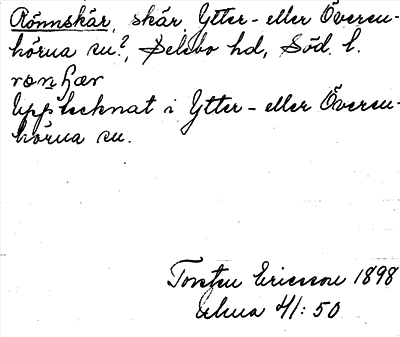 Rönnskär, skär, Ytter- eller Överen-
hörna sn?, Selebo hd, Söd. l.
rønʃær
Upptecknat i Ytter- eller Överen-
hörna sn.
Torsten Ericsson 1898
Ahua 41:50